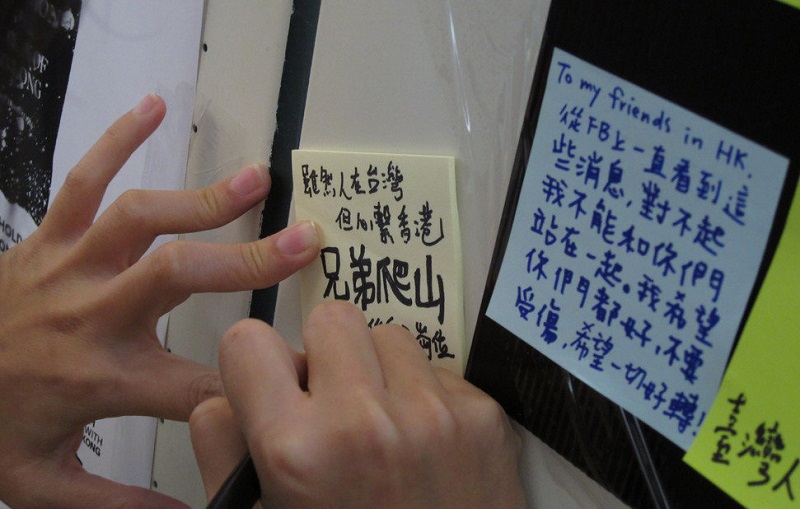 OF
ONG
HOLD
KONG
WITH
KONG
雖然人在台灣
但心繫香港
兄弟爬山
崗位
To my friends in HK,
從FB上一直看到這
些消息,對不起
我不能和你們
站在一起。我希望
你們都好,不要
受傷,希望一切好轉!
臺灣人